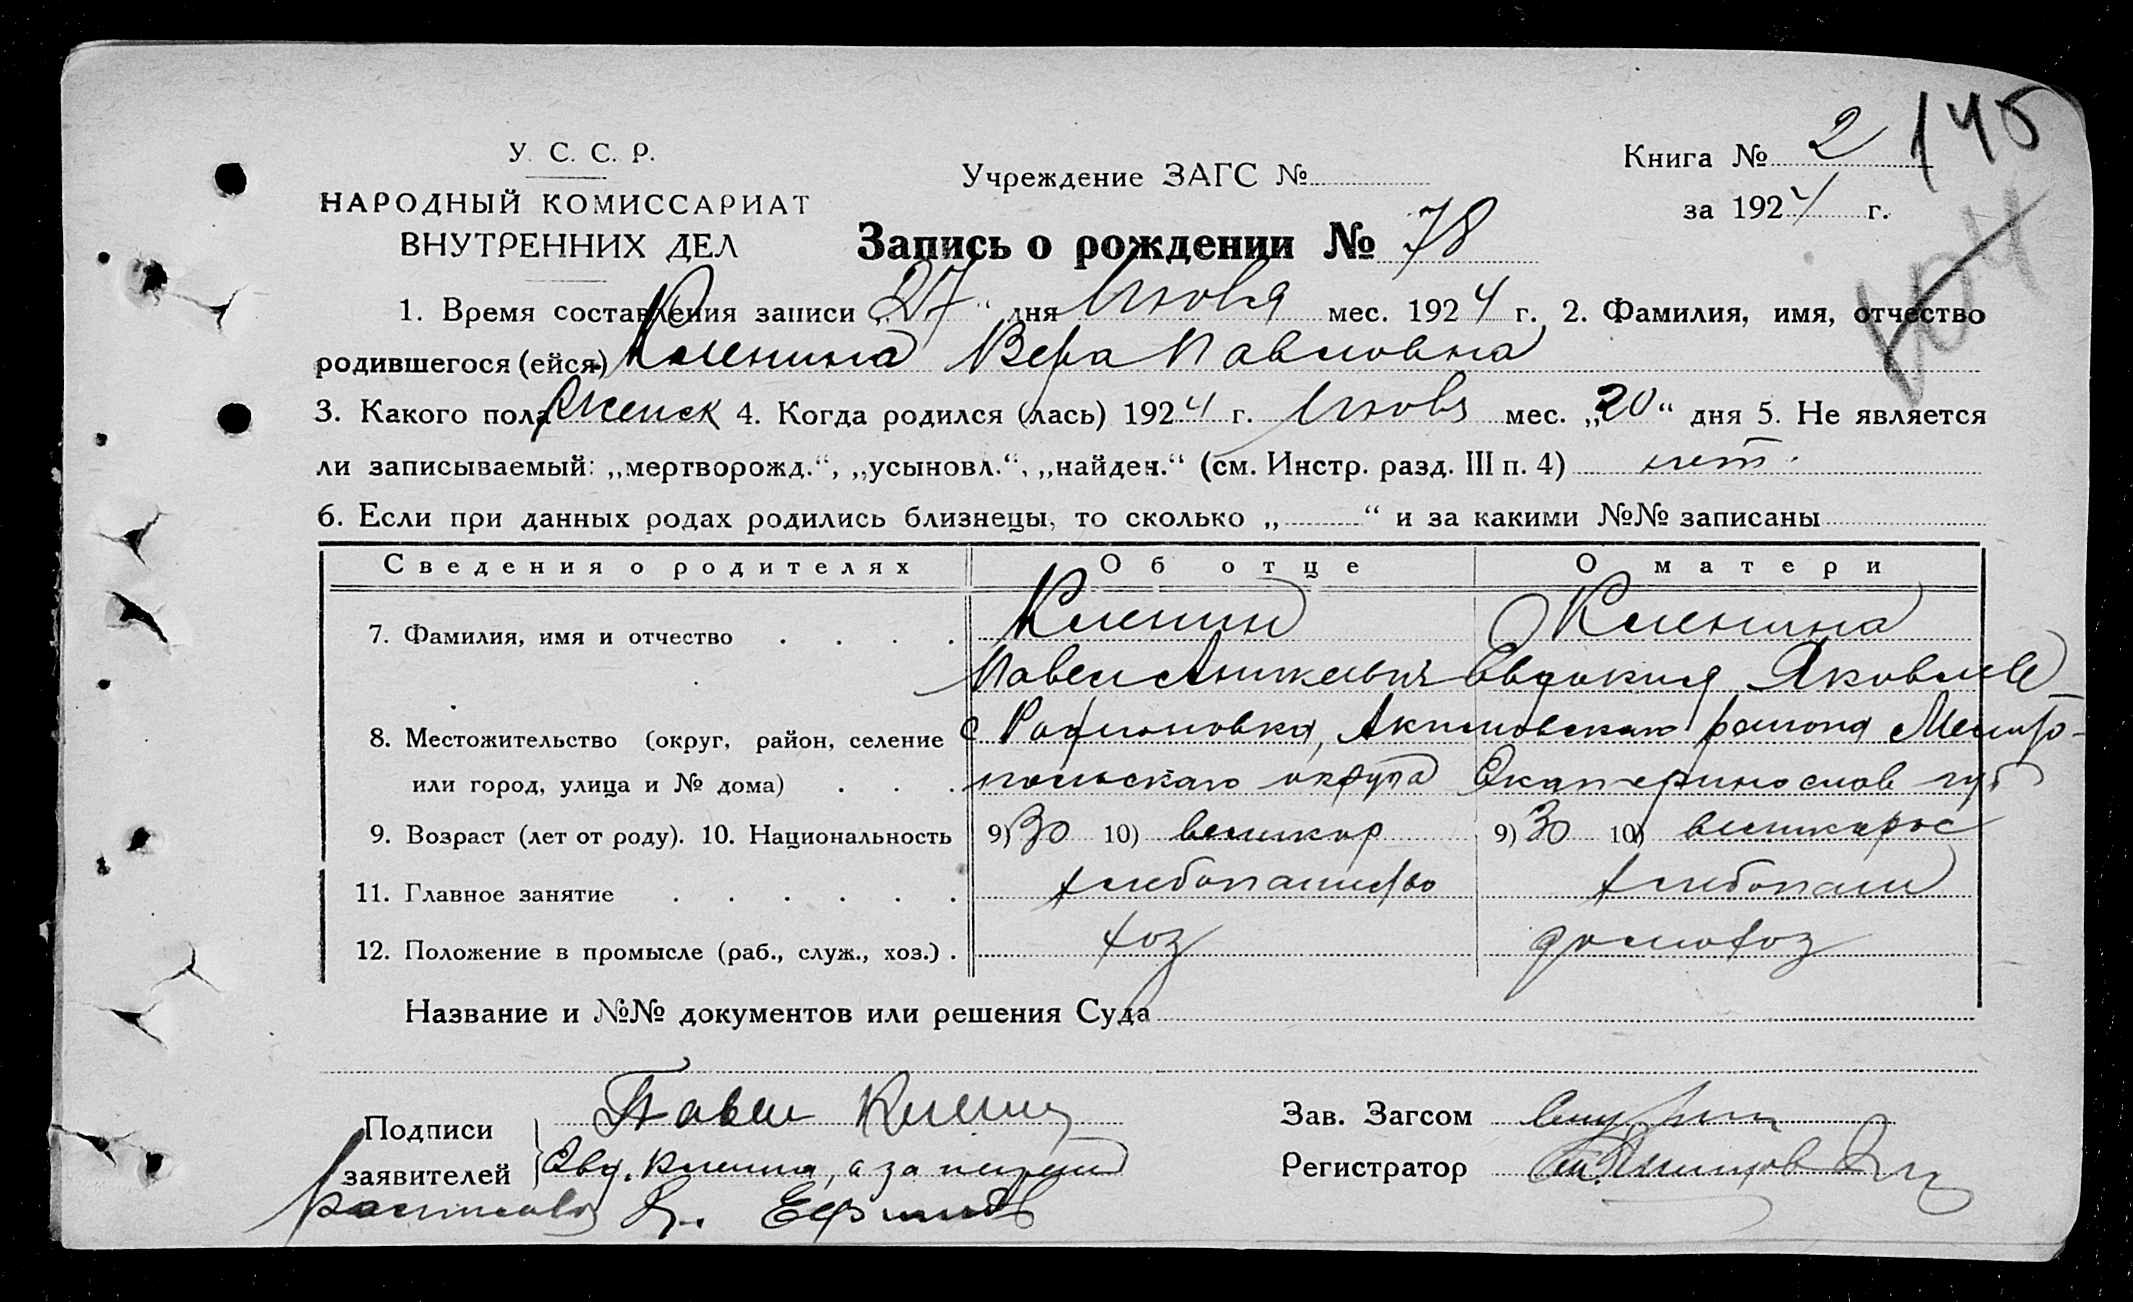 У. С. С. Р.
НАРОДНЫЙ КОМИССАРИАТ
ВНУТРЕННИХ ДЕЛ
Учреждение ЗАГС №
Книга № 2
145
за 1924 г.
Запись о рождении № 78
1. Время составления записи „27“ дня Июля мес. 1924 г. 2. Фамилия, имя, отчество
родившегося (ейся) Кленина Вера Павловна
3. Какого пола женск 4. Когда родился (лась) 1924 г. Июля мес. „20“ дня 5. Не является
ли записываемый: „мертворожд.“, „усыновл.“, „найден.“ (см. Инстр. разд. III п. 4) нет.
6. Если при данных родах родились близнецы, то сколько „ “ и за какими №№ записаны
Сведения о родителях Об отце О матери
7. Фамилия, имя и отчество Кленин Кленина
Павел Евдокия Яковлев
8. Местожительство (округ, район, селение с Родионовка, Акимовского района Мелито-
или город, улица и № дома) польскаго округа Екатеринослав губ
9. Возраст (лет от роду). 10. Национальность 9) 30 10) великор 9) 30 10) великорос
11. Главное занятие хлебопашество хлебопаш
12. Положение в промысле (раб., служ., хоз.) хоз домохоз
Название и №№ документов или решения Суда
Подписи Павел Кленин Зав. Загсом
заявителей Евд. Кленина, а за неграм Регистратор